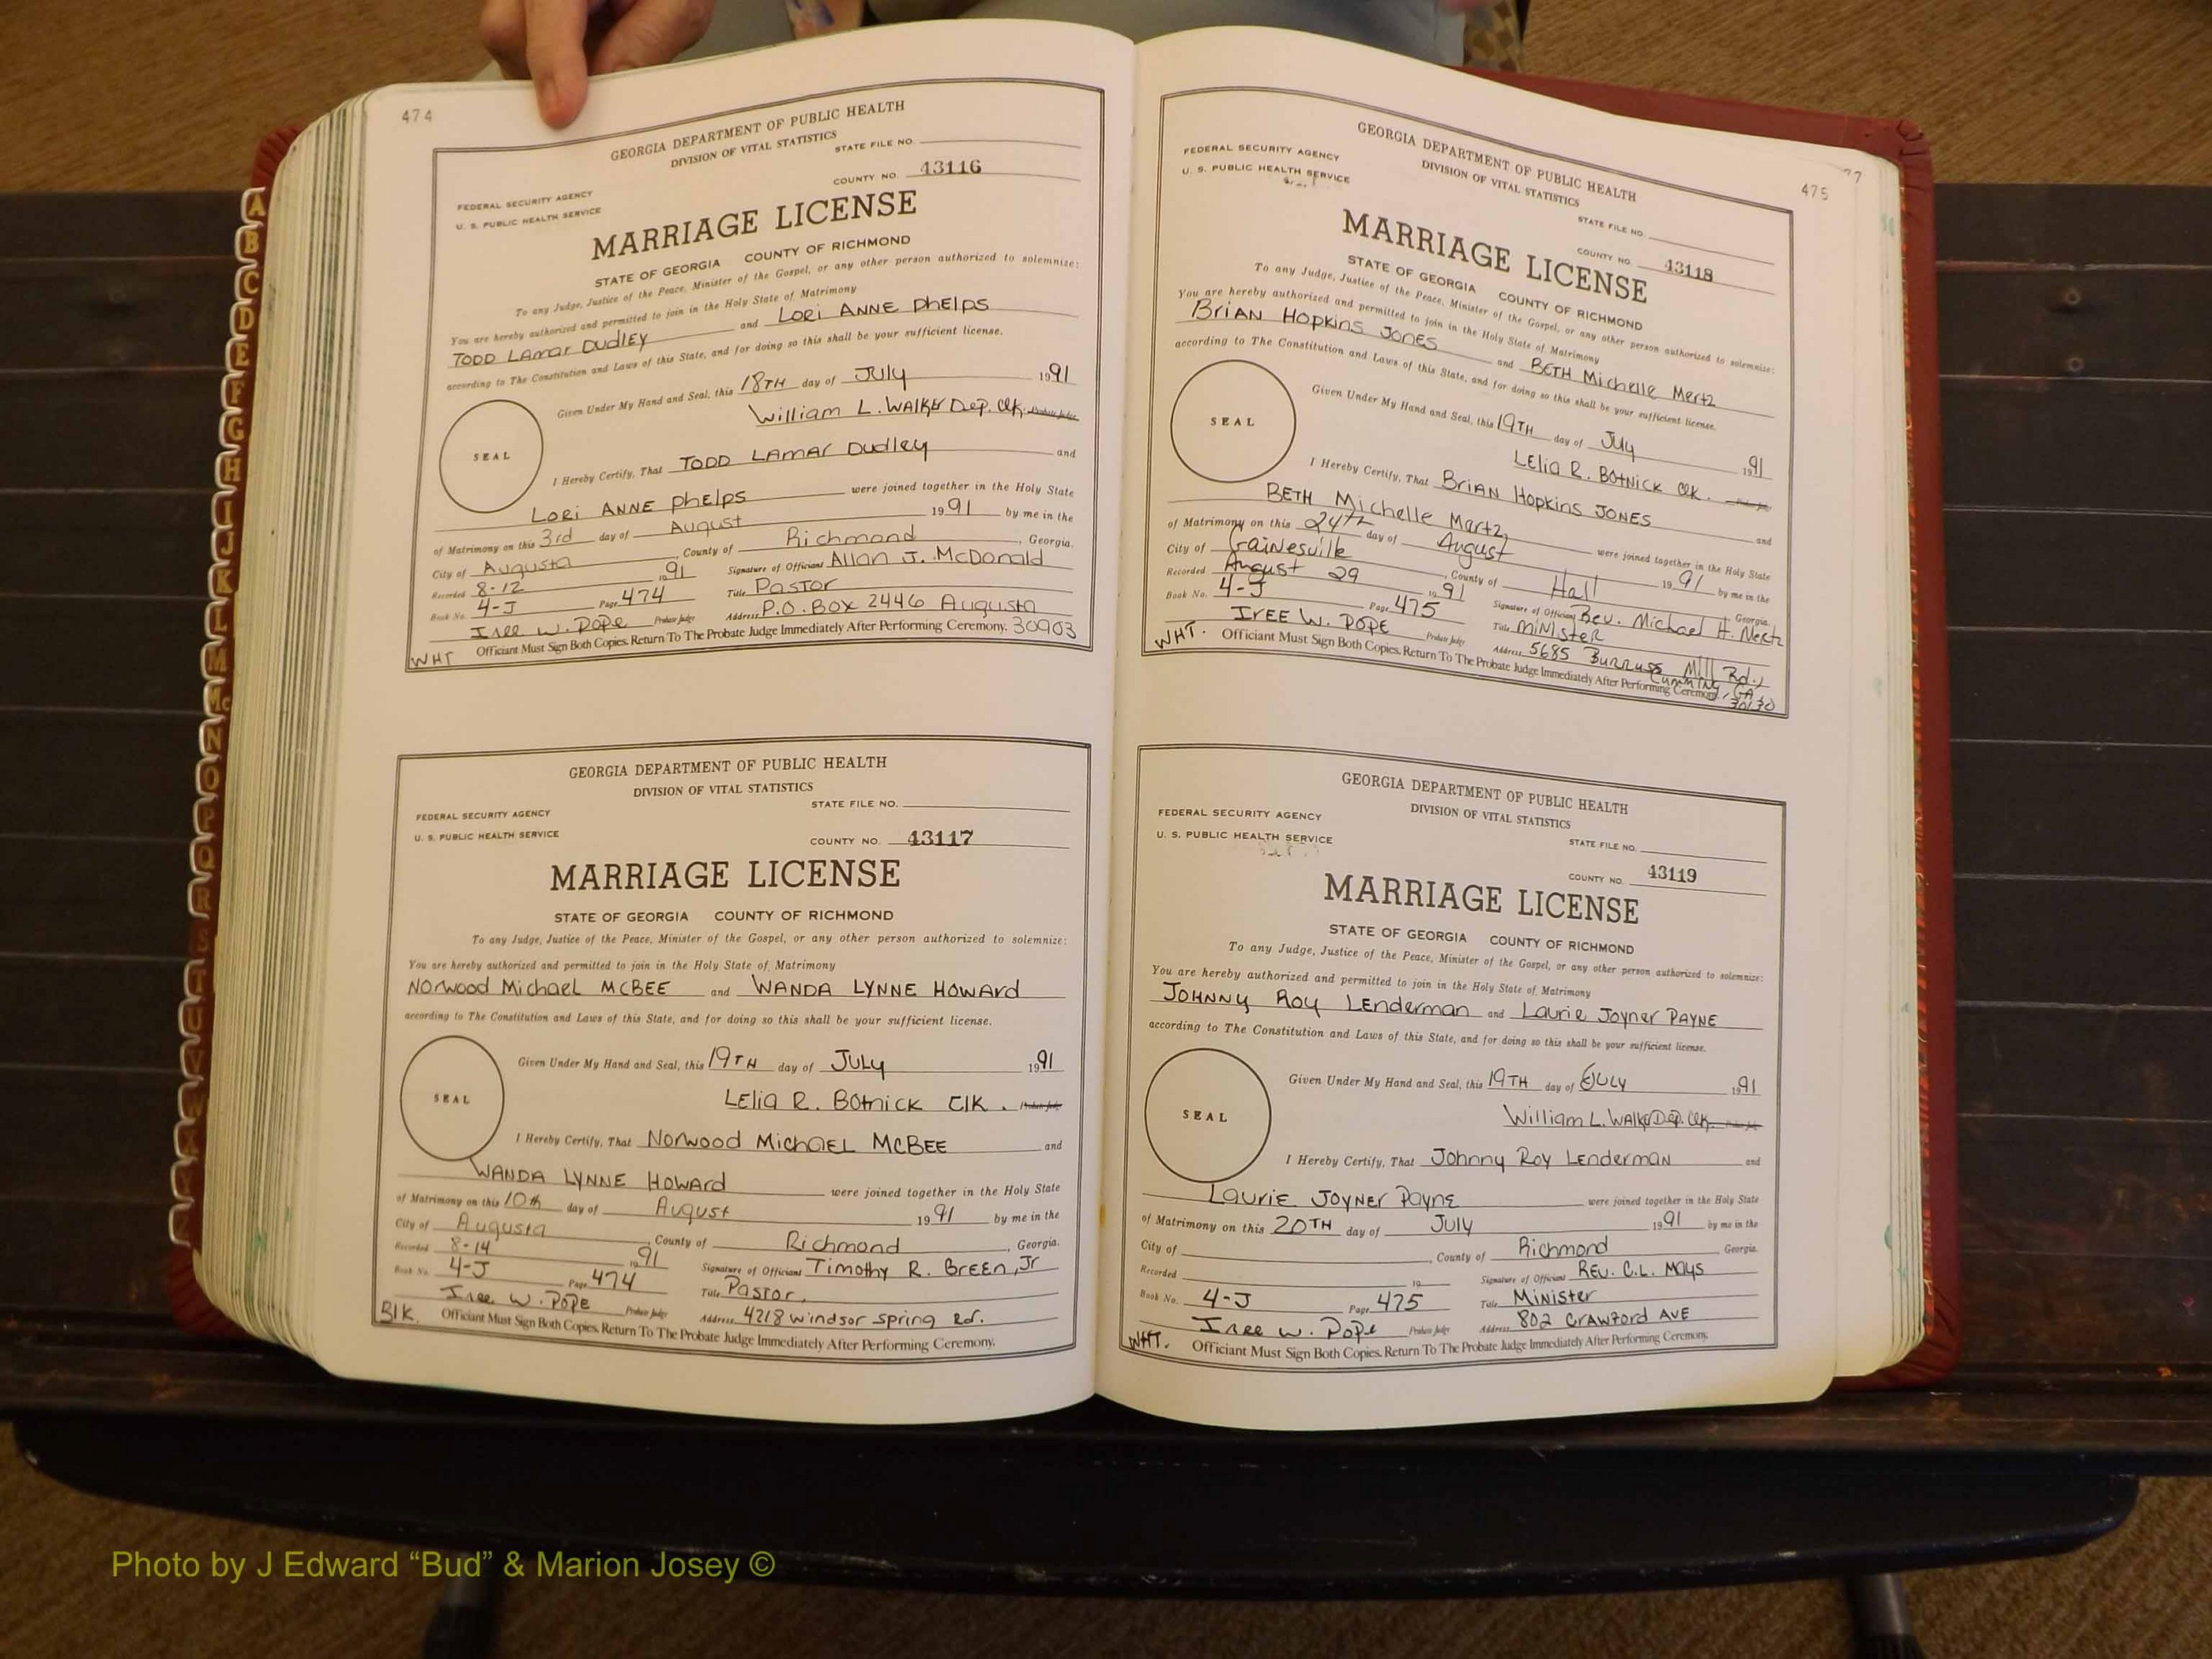 474
GEORGIA DEPARTMENT OF PUBLIC HEALTH
DIVISION OF VITAL STATISTICS
STATE FILE NO.
COUNTY NO. 43116
FEDERAL SECURITY AGENCY
U. S. PUBLIC HEALTH SERVICE
MARRIAGE LICENSE
STATE OF GEORGIA COUNTY OF RICHMOND
To any Judge, Justice of the Peace, Minister of the Gospel, or any other person authorized to solemnize:
You are hereby authorized and permitted to join in the Holy State of Matrimony
TODD LAmar DUDLEY and LORI ANNE PhELPS
according to The Constitution and Laws of this State, and for doing so this shall be your sufficient license.
Given Under My Hand and Seal, this 18TH day of July 1991
William L. WALKER Dep. Clk. Probate Judge
SEAL
I Hereby Certify, That TODD LAMAr Dudley and
LORI ANNE PhELPS were joined together in the Holy State
of Matrimony on this 3rd day of August 1991 by me in the
City of Augusta, County of Richmond, Georgia.
Recorded 8-12 1991 Signature of Officiant Allan J. McDonald
Book No. 4-J Page 474 Title Pastor
Iree W. Pope Probate Judge Address P.O. Box 2446 Augusta
WHT Officiant Must Sign Both Copies. Return To The Probate Judge Immediately After Performing Ceremony. 30903
GEORGIA DEPARTMENT OF PUBLIC HEALTH
DIVISION OF VITAL STATISTICS
STATE FILE NO.
FEDERAL SECURITY AGENCY
U. S. PUBLIC HEALTH SERVICE
COUNTY NO. 43117
MARRIAGE LICENSE
STATE OF GEORGIA COUNTY OF RICHMOND
To any Judge, Justice of the Peace, Minister of the Gospel, or any other person authorized to solemnize:
You are hereby authorized and permitted to join in the Holy State of Matrimony
Norwood Michael MCBEE and WANDA LYNNE HOWArd
according to The Constitution and Laws of this State, and for doing so this shall be your sufficient license.
Given Under My Hand and Seal, this 19TH day of JULY 1991
LELia R. BOtnick Clk. Probate Judge
SEAL
I Hereby Certify, That Norwood MichaEL MCBEE and
WANDA LYNNE HOWArd were joined together in the Holy State
of Matrimony on this 10th day of August 1991 by me in the
City of Augusta, County of Richmond, Georgia.
Recorded 8-14 1991 Signature of Officiant Timothy R. Green, Jr
Book No. 4-J Page 474 Title Pastor
Iree W. Pope Probate Judge Address 4218 Windsor Spring Rd.
Blk. Officiant Must Sign Both Copies. Return To The Probate Judge Immediately After Performing Ceremony.
475
GEORGIA DEPARTMENT OF PUBLIC HEALTH
DIVISION OF VITAL STATISTICS
FEDERAL SECURITY AGENCY
U. S. PUBLIC HEALTH SERVICE
STATE FILE NO.
COUNTY NO. 43118
MARRIAGE LICENSE
STATE OF GEORGIA COUNTY OF RICHMOND
To any Judge, Justice of the Peace, Minister of the Gospel, or any other person authorized to solemnize:
You are hereby authorized and permitted to join in the Holy State of Matrimony
BriAN Hopkins JONES and BETH Michelle Mertz
according to The Constitution and Laws of this State, and for doing so this shall be your sufficient license.
Given Under My Hand and Seal, this 19TH day of July 1991
LELia R. BOtNick Clk. Probate Judge
SEAL
I Hereby Certify, That BriAN Hopkins JONES and
BETH Michelle Mertz were joined together in the Holy State
of Matrimony on this 24th day of August 1991 by me in the
City of Gainesville, County of Hall Georgia.
Recorded August 29 1991 Signature of Officiant Rev. Michael H. Mertz
Book No. 4-J Page 475 Title Minister
IREE W. POPE Probate Judge Address 5685 Burruss Mill Rd.,
Cumming, GA 30130
WHT. Officiant Must Sign Both Copies. Return To The Probate Judge Immediately After Performing Ceremony.
GEORGIA DEPARTMENT OF PUBLIC HEALTH
DIVISION OF VITAL STATISTICS
FEDERAL SECURITY AGENCY
U. S. PUBLIC HEALTH SERVICE
STATE FILE NO.
COUNTY NO. 43119
MARRIAGE LICENSE
STATE OF GEORGIA COUNTY OF RICHMOND
To any Judge, Justice of the Peace, Minister of the Gospel, or any other person authorized to solemnize:
You are hereby authorized and permitted to join in the Holy State of Matrimony
JOHNNY Roy Lenderman and Laurie Joyner PAYNE
according to The Constitution and Laws of this State, and for doing so this shall be your sufficient license.
Given Under My Hand and Seal, this 19TH day of JULY 1991
William L. WALKER Dep. Clk. Probate Judge
SEAL
I Hereby Certify, That Johnny Roy LENdermaN and
LAUriE JOYNEr Payne were joined together in the Holy State
of Matrimony on this 20TH day of July 1991 by me in the
City of , County of Richmond Georgia.
Recorded 19 Signature of Officiant REV. C.L. Mays
Book No. 4-J Page 475 Title Minister
Iree W. Pope Probate Judge Address 802 Crawford AVE
WHT. Officiant Must Sign Both Copies. Return To The Probate Judge Immediately After Performing Ceremony.
A
B
C
D
E
F
G
H
I
J
K
L
M
Mc
N
O
P
Q
R
S
T
U
V
W
Photo by J Edward “Bud” & Marion Josey ©